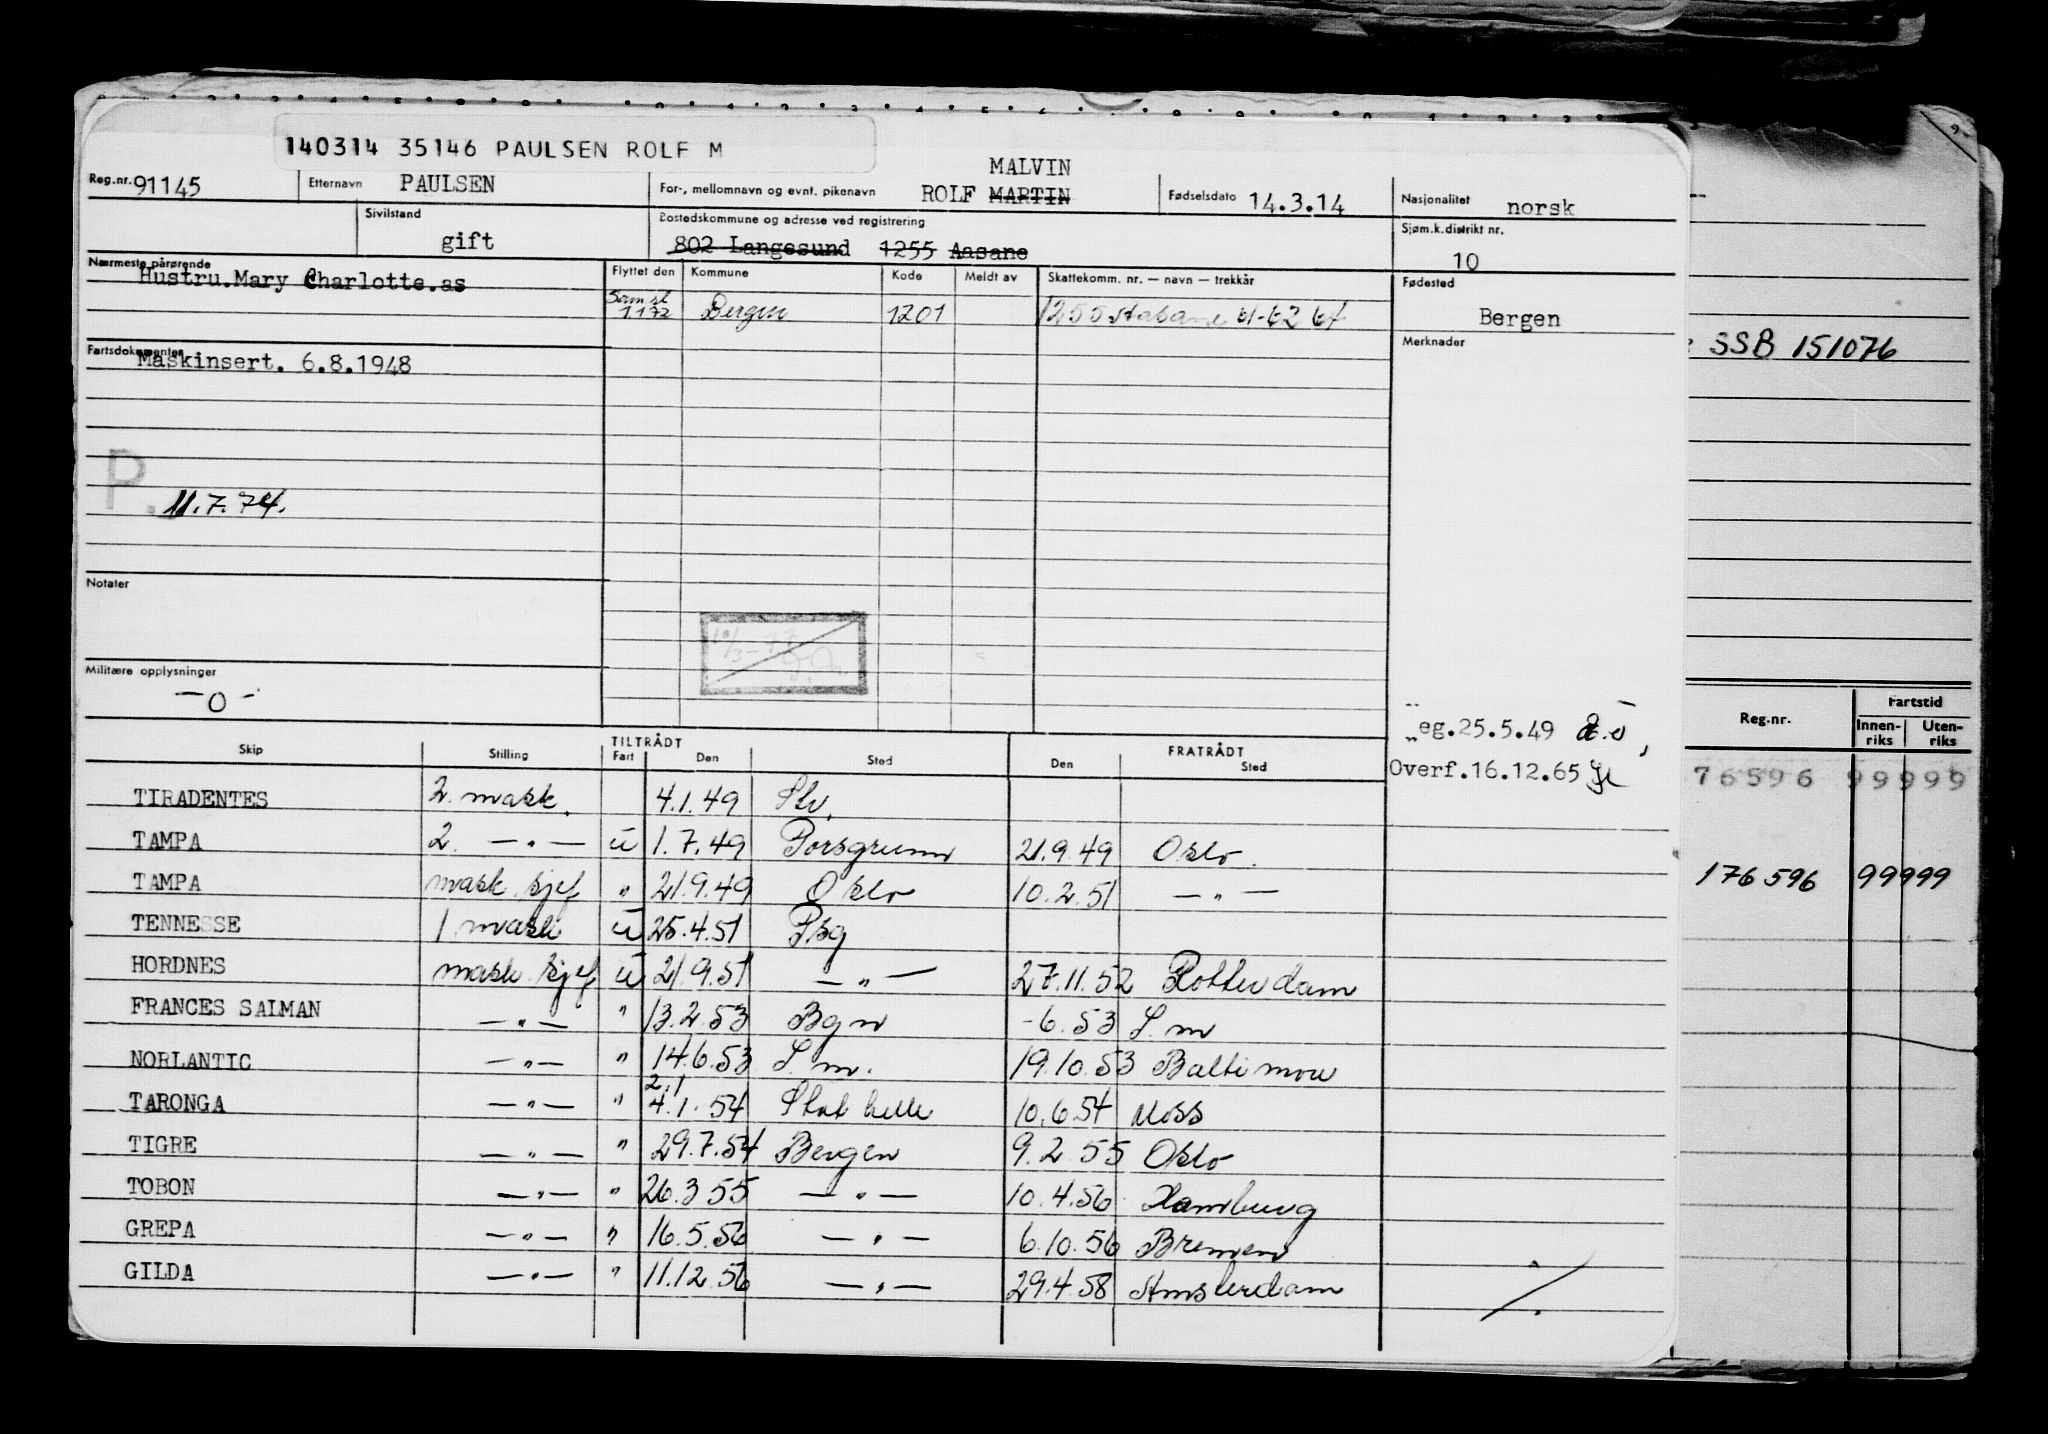 140314 35146 PAULSEN ROLF M
Reg.nr. 91145 Etternavn PAULSEN For-, mellomnavn og evnt. pikenavn ROLF MARTIN MALVIN Fødselsdato 14.3.14 Nasjonalitet norsk
Sivilstand gift Bostedskommune og adresse ved registrering 802 Langesund 1255 Aasane Sjøm.k.distrikt nr. 10
Nærmeste pårørende Hustru.Mary Charlotte.as
Flyttet den Kommune Kode Meldt av Skattekomm. nr. — navn — trekkår Fødested Bergen
1.1.72 Bergen 1201 1255
Fartsdokumenter Maskinsert. 6.8.1948
Merknader
SSB 151076
P. 11.7.74.
Notater
Militære opplysninger
-0-
eg.25.5.49
Overf.16.12.65
Reg.nr. Fartstid
Innen-riks Uten-riks
76596 99999
176596 99999
TILTRÅDT FRATRÅDT
Skip Stilling Fart Den Sted Den Sted
TIRADENTES 2. mask. 4.1.49
TAMPA 2. —"— u 1.7.49 Porsgrunn 21.9.49 Oslo.
TAMPA mask. kjef " 21.9.49 Oslo 10.2.51 —"—
TENNESSE 1 mask u 25.4.51 Psg
HORDNES mask. kjef u 21.9.51 —"— 27.11.52 Rotterdam
FRANCES SALMAN —"— " 13.2.53 Bgn -6.53 S.m
NORLANTIC —"— " 14.6.53 S.m. 19.10.53 Baltimore
TARONGA —"— " 2.1 4.1.54 Stathelle 10.6.54 Moss
TIGRE —"— " 29.7.54 Bergen 9.2.55 Oslo
TOBON —"— " 26.3.55 —"— 10.4.56 Hamburg
GREPA —"— " 16.5.56 —"— 6.10.56 Bremen
GILDA —"— " 11.12.56 —"— 29.4.58 Amsterdam